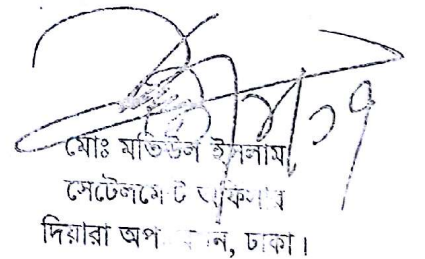 মোঃ মতিউল ইসলাম
সেটেলমেন্ট অফিসার
দিয়ারা অপারেশন, ঢাকা।